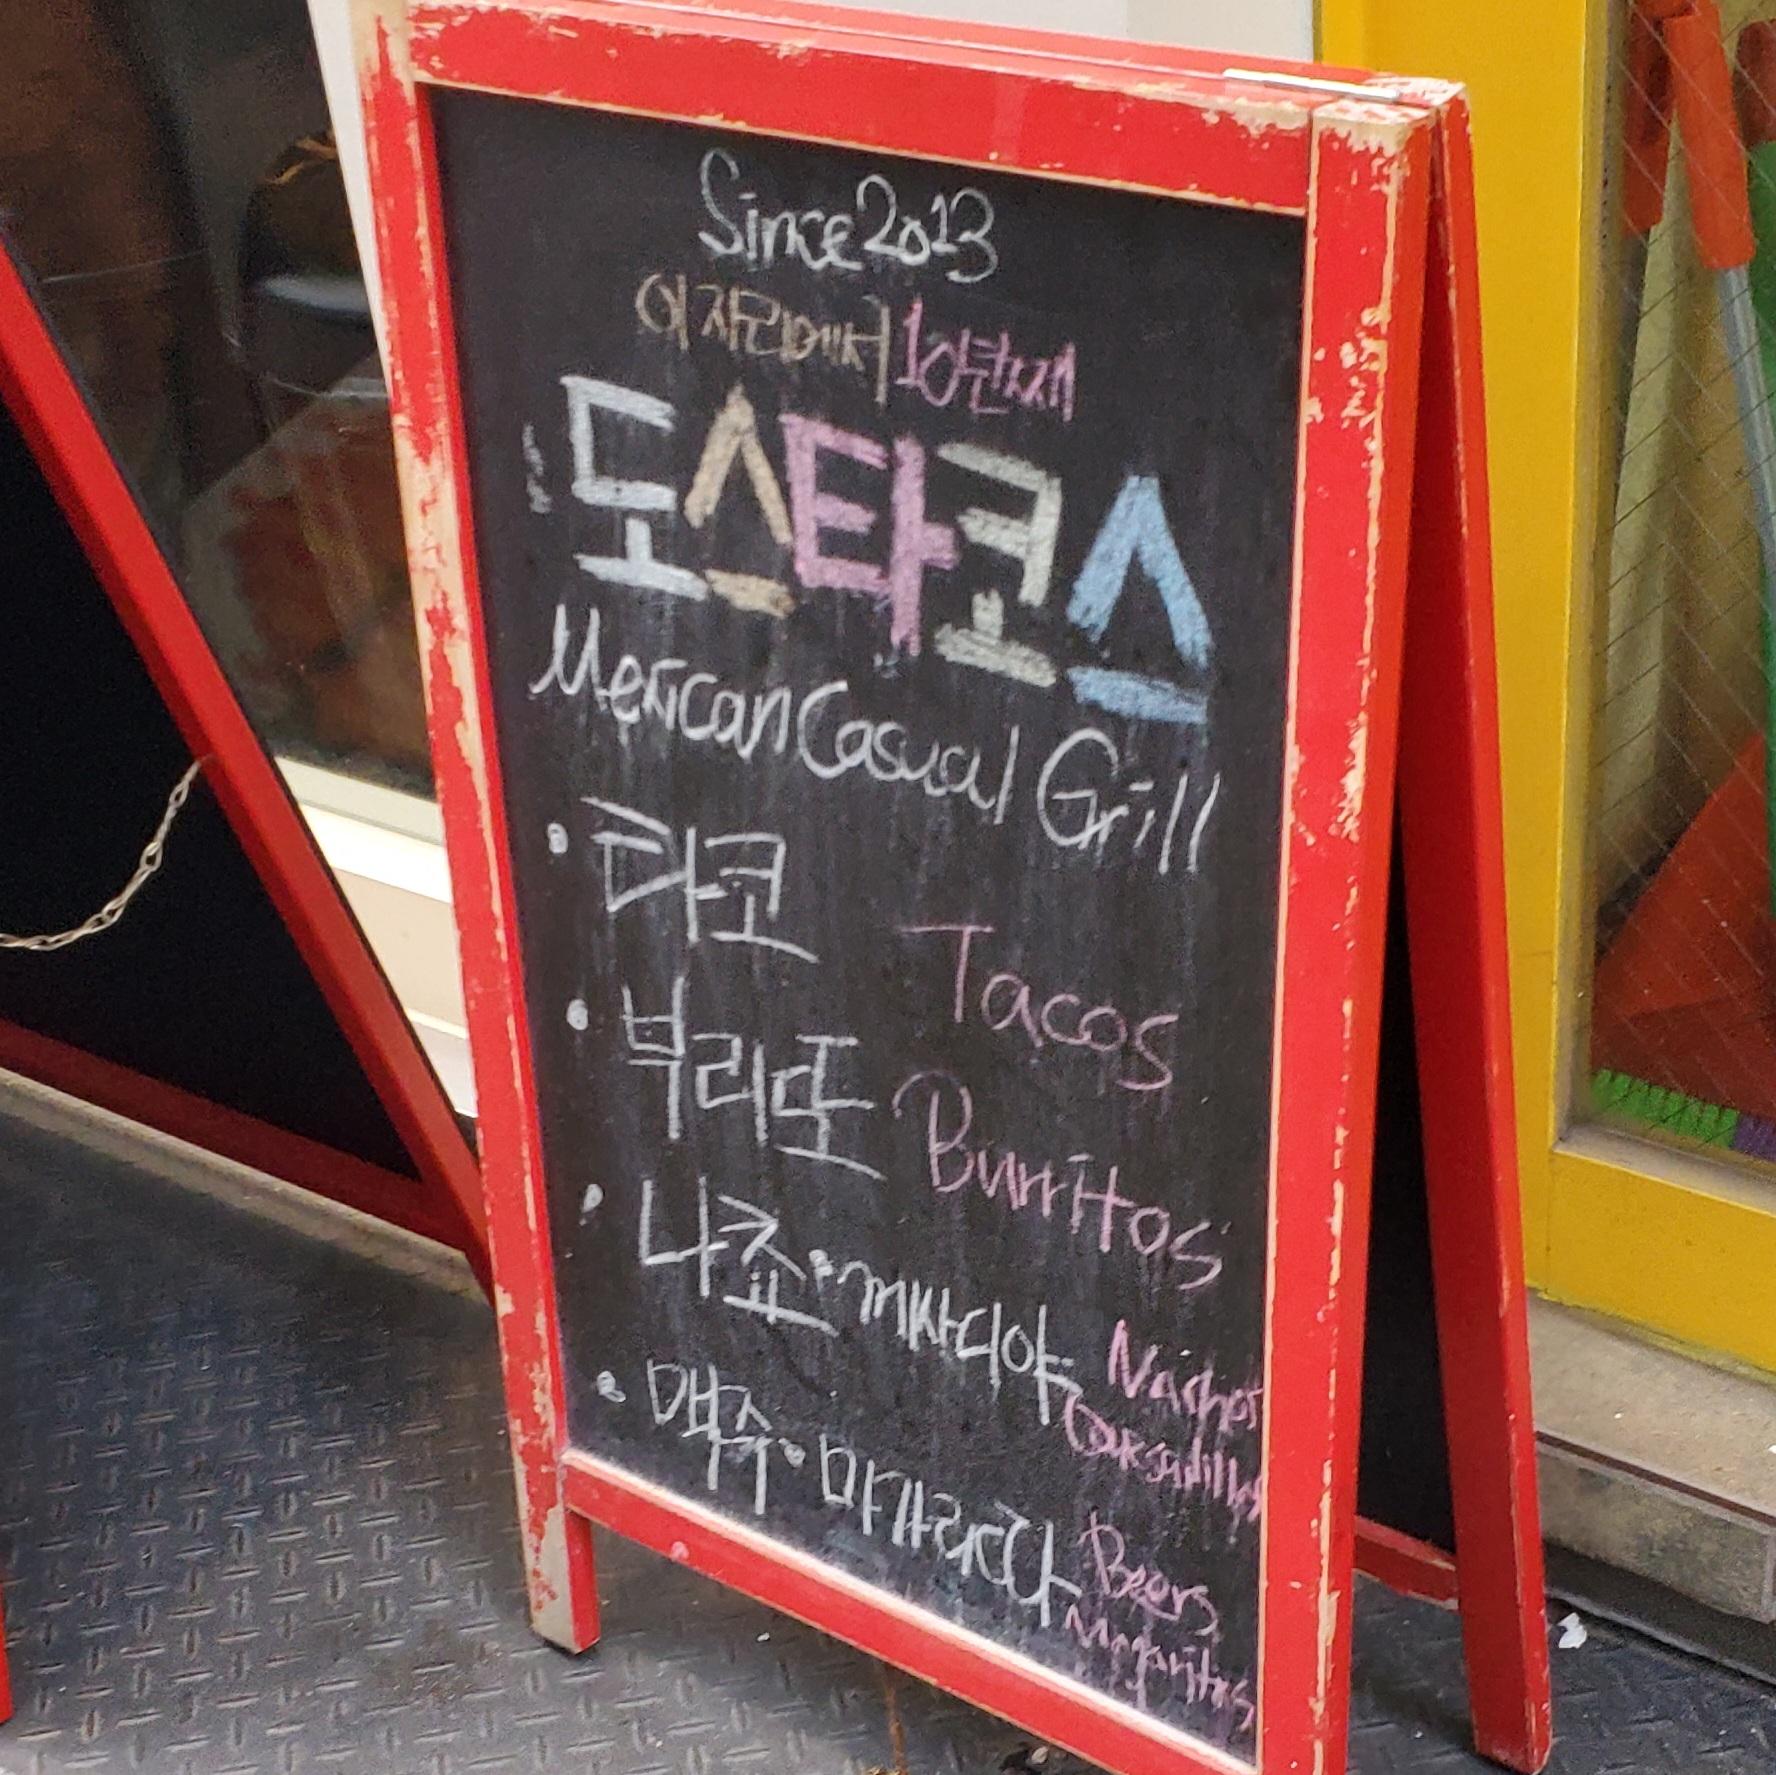 Since 2013
이 자리에서 10년째
도스타코스
Mexican Casual Grill
· 타코 Tacos
· 부리또 Burritos
· 나쵸·께사디아 Nachos
Quesadillas
· 맥주·마가리타 Beers
Margaritas